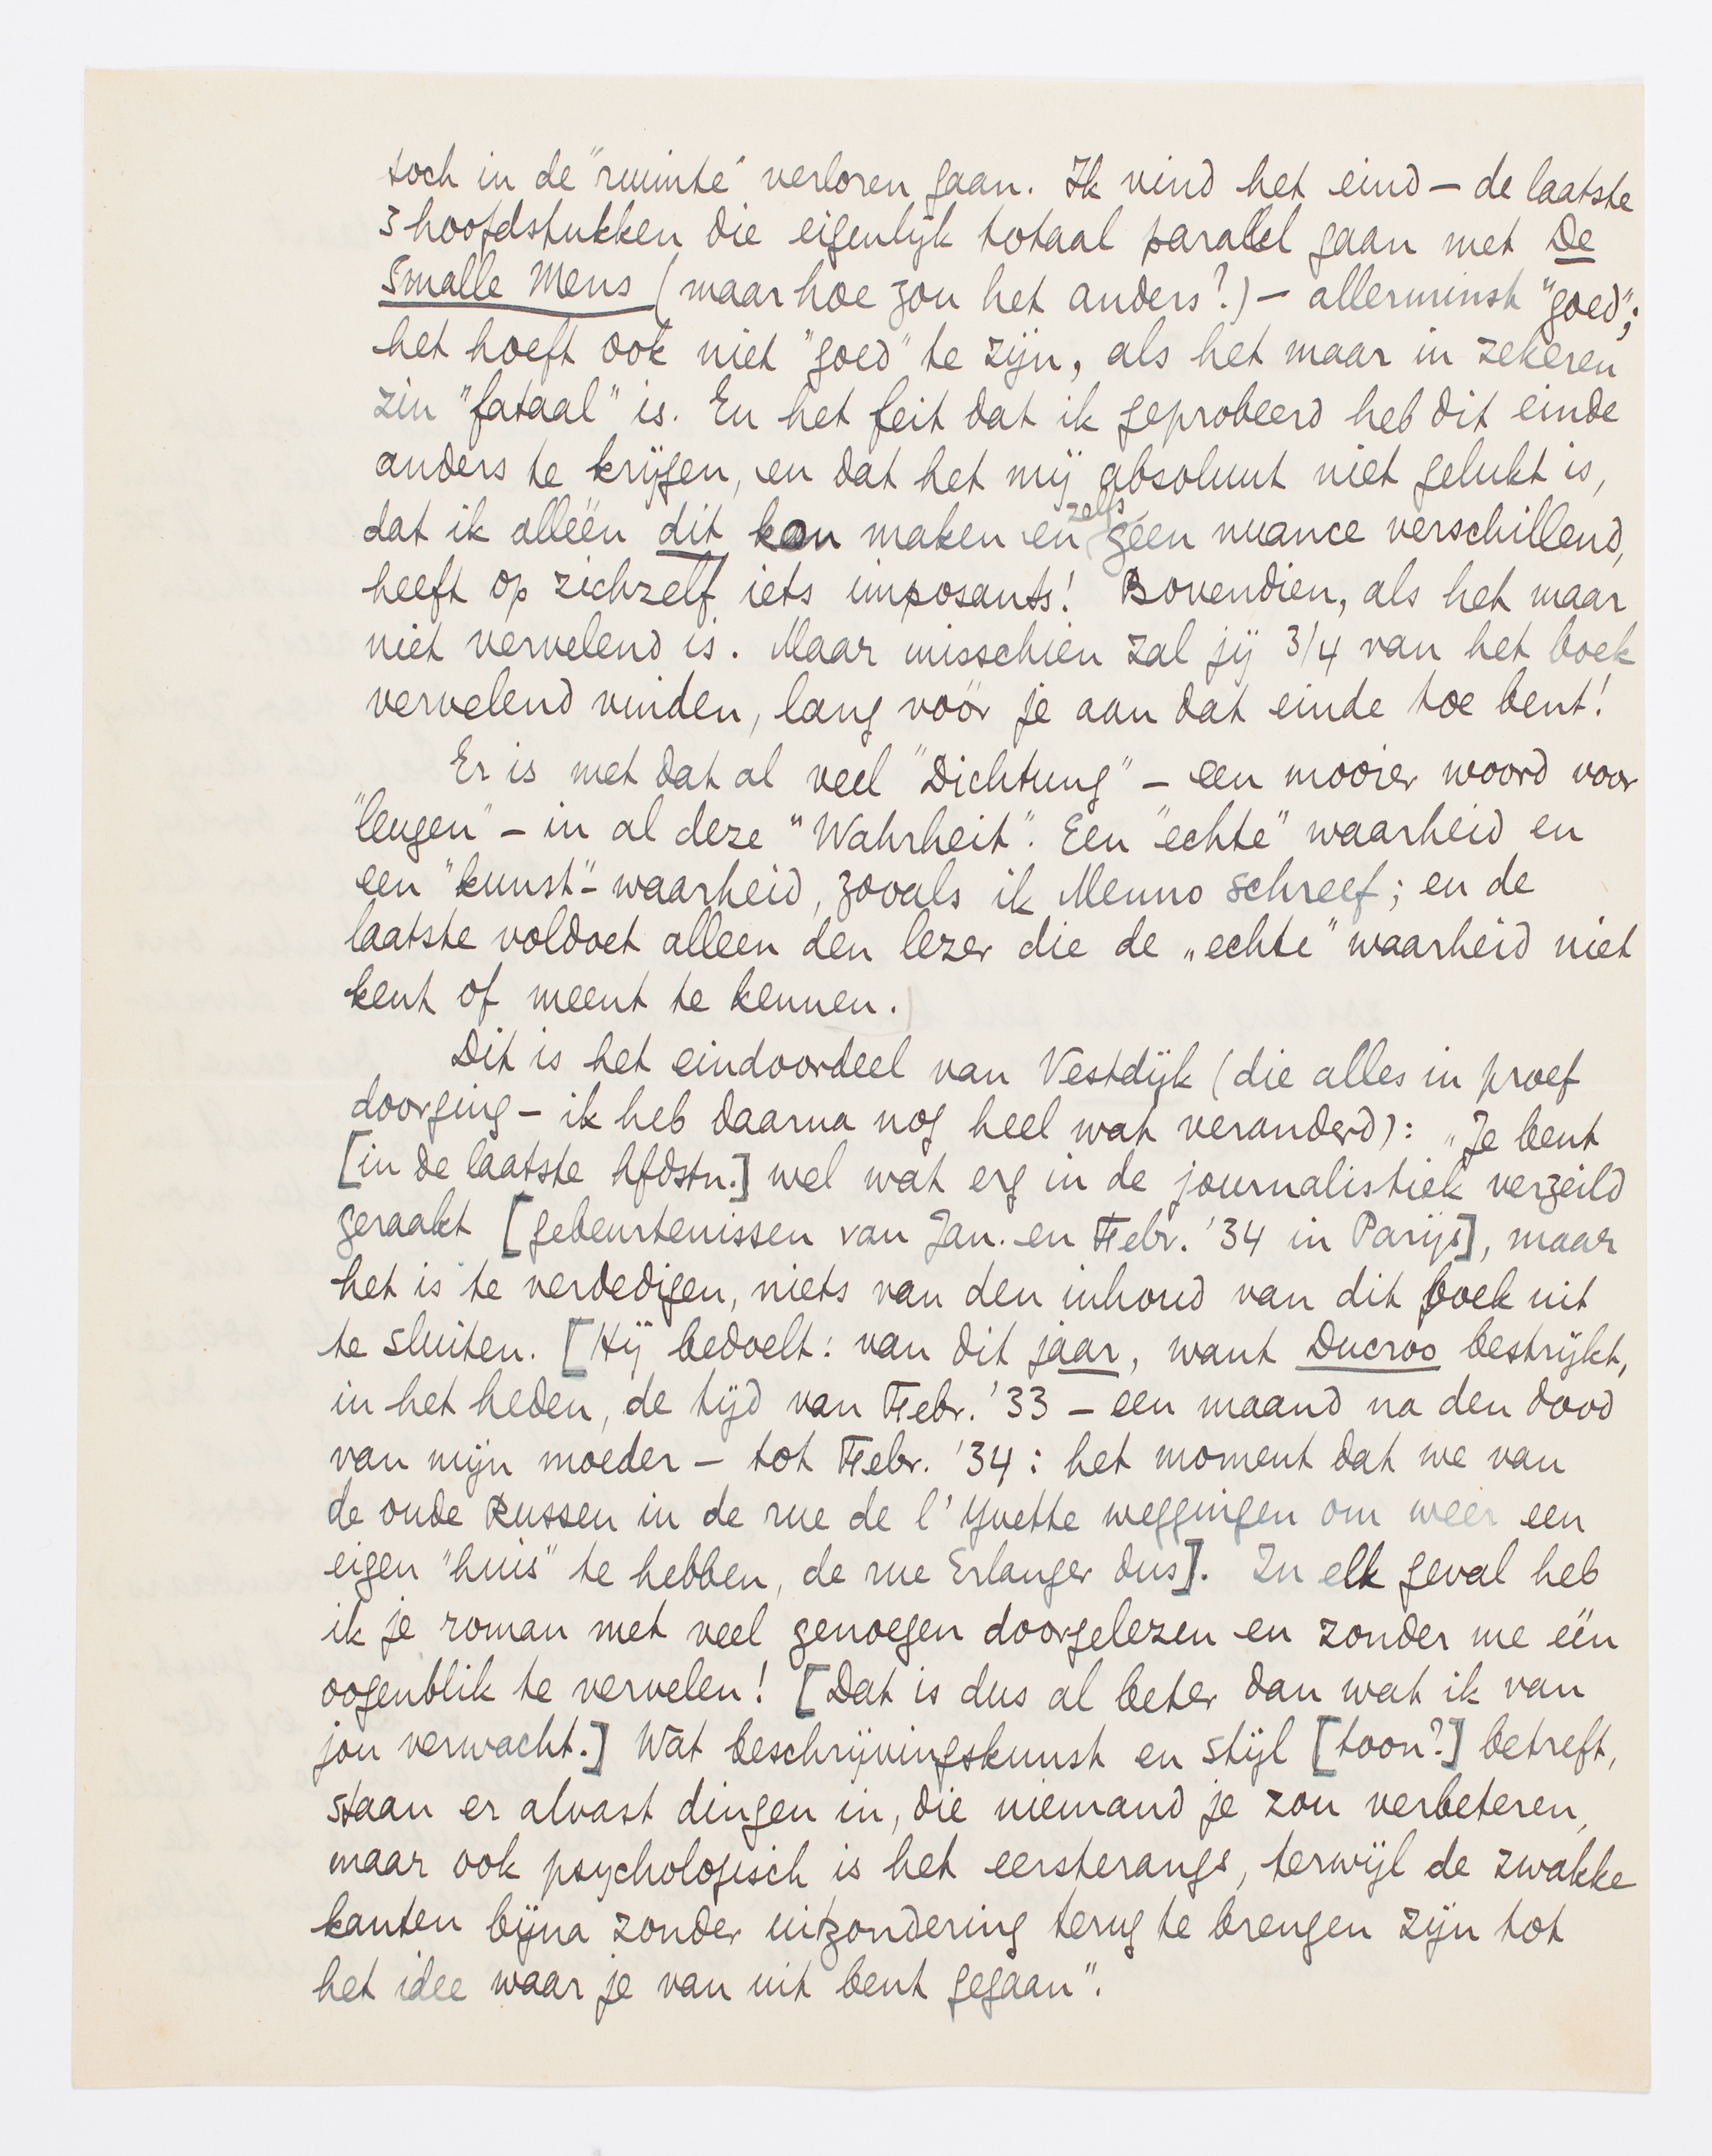 toch in de "ruimte" verloren gaan. Ik vind het eind – de laatste
3 hoofdstukken die eigenlijk totaal parallel gaan met De
Smalle Mens (maar hoe zou het anders?) – allerminst "goed";
het hoeft ook niet "goed" te zijn, als het maar in zekeren
zin "fataal" is. En het feit dat ik geprobeerd heb dit einde
anders te krijgen, en dat het mij absoluut niet gelukt is,
dat ik alléén dit kon maken en zelfs geen nuance verschillend,
heeft op zichzelf iets imposants! Bovendien, als het maar
niet vervelend is. Maar misschien zal jij 3/4 van het boek
vervelend vinden, lang vóór je aan dat einde toe bent!
Er is met dat al veel "Dichtung" – een mooier woord voor
"leugen" – in al deze "Wahrheit". Een "echte" waarheid en
een "kunst"-waarheid, zooals ik Menno schreef; en de
laatste voldoet alleen den lezer die de „echte" waarheid niet
kent of meent te kennen.)
Dit is het eindoordeel van Vestdijk (die alles in proef
doorging – ik heb daarna nog heel wat veranderd): „Je bent
[in de laatste hfdstn.] wel wat erg in de journalistiek verzeild
geraakt [gebeurtenissen van Jan. en Febr. '34 in Parijs], maar
het is te verdedigen, niets van den inhoud van dit boek uit
te sluiten. [Hij bedoelt: van dit jaar, want Ducroo bestrijkt,
in het heden, de tijd van Febr. '33 – een maand na den dood
van mijn moeder – tot Febr. '34: het moment dat we van
de oude Russen in de rue de l'Yvette weggingen om weer een
eigen "huis" te hebben, de rue Erlanger dus]. In elk geval heb
ik je roman met veel genoegen doorgelezen en zonder me één
oogenblik te vervelen! [Dat is dus al beter dan wat ik van
jou verwacht.] Wat beschrijvingskunst en stijl [toon?] betreft,
staan er alvast dingen in, die niemand je zou verbeteren,
maar ook psychologisch is het eersterangs, terwijl de zwakke
kanten bijna zonder uitzondering terug te brengen zijn tot
het idee waar je van uit bent gegaan".